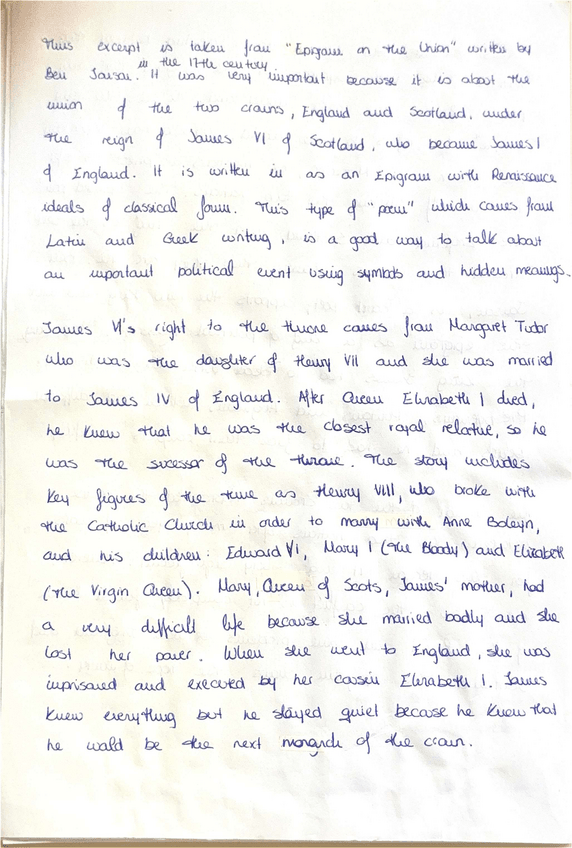 This excerpt is taken from "Epigram on the Union" written by
in the 17th century
Ben Jonson. It was very important because it is about the
union of the two crowns, England and Scotland, under
the reign of James VI of Scotland, who became James I
of England. It is written in as an Epigram with Renaissance
ideals of classical form. This type of "poem" which comes from
Latin and Greek writing, is a good way to talk about
an important political event using symbols and hidden meanings.
James VI's right to the throne comes from Margaret Tudor
who was the daughter of Henry VII and she was married
to James IV of England. After Queen Elizabeth I died,
he knew that he was the closest royal relative, so he
was the sucessor of the throne. The story includes
key figures of the time as Henry VIII, who broke with
the Catholic Church in order to marry with Anne Boleyn,
and his children: Edward VI, Mary I (the Bloody) and Elizabeth
(the Virgin Queen). Mary, Queen of Scots, James' mother, had
a very difficult life because she married badly and she
lost her power. When she went to England, she was
imprisoned and executed by her cousin Elizabeth I. James
knew everything but he stayed quiet because he knew that
he would be the next monarch of the crown.